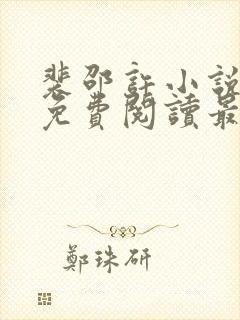 裴邵許小說
免費閱讀最
鄭珠研